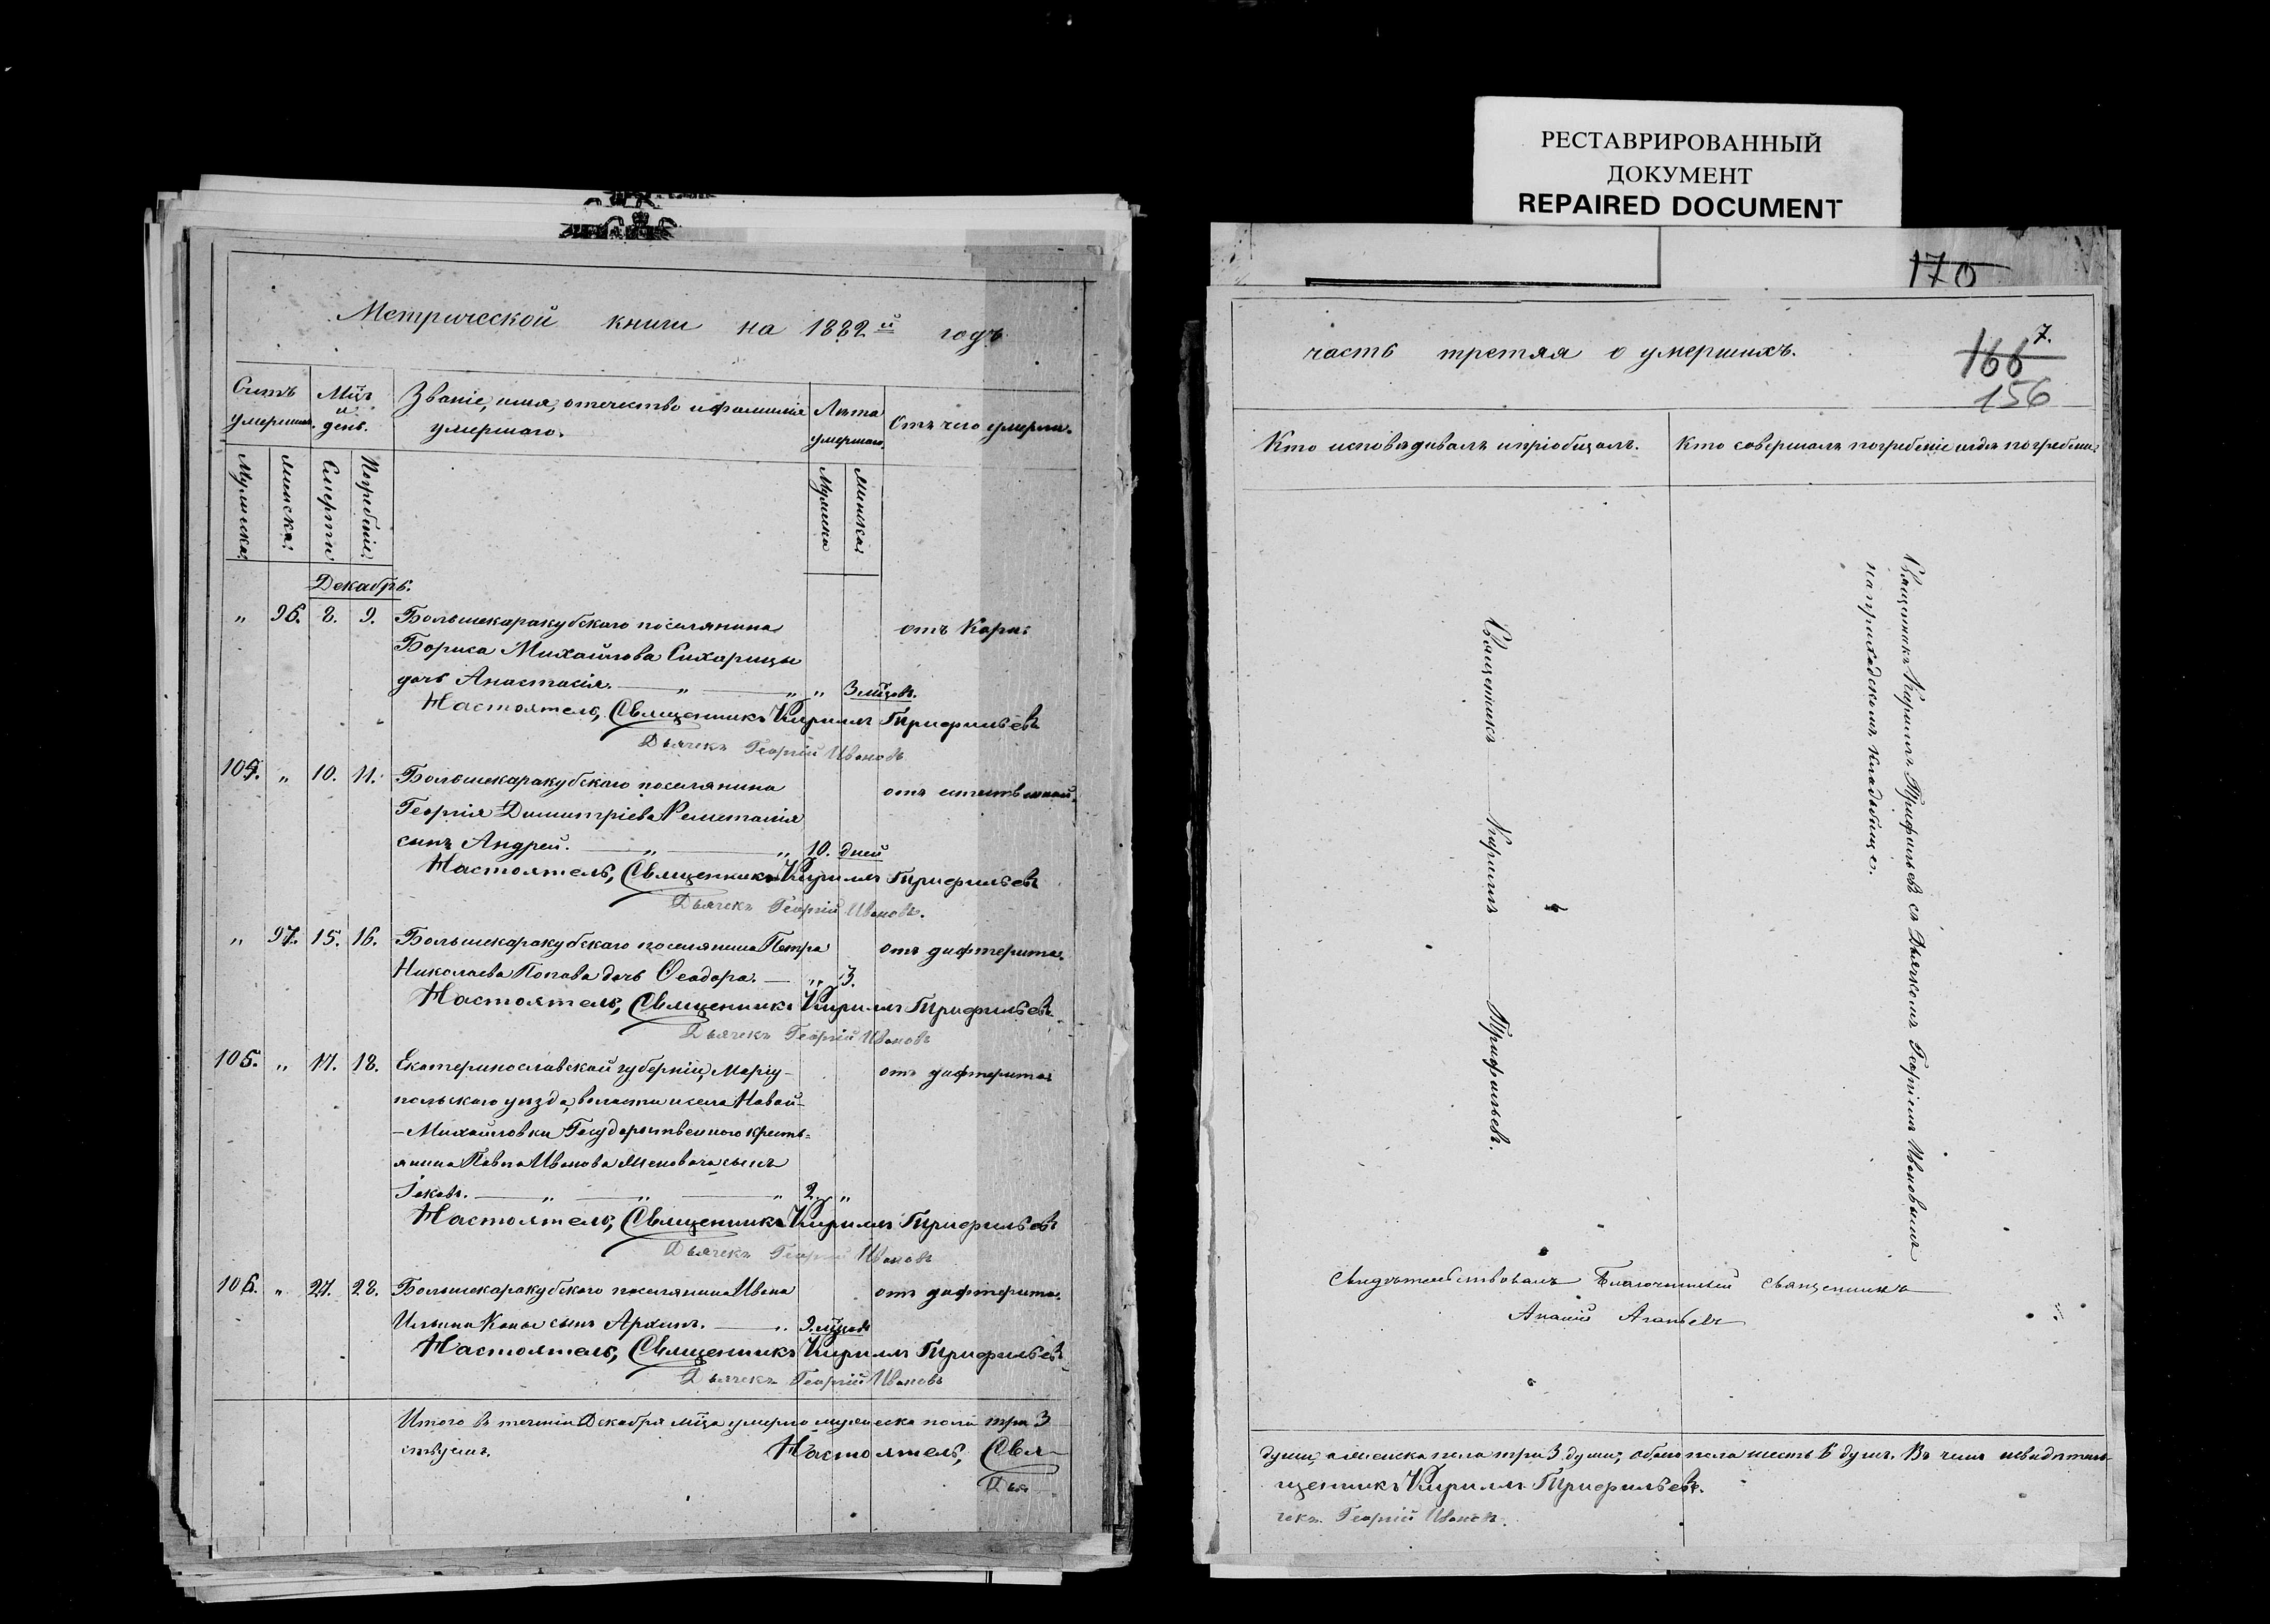 РЕСТАВРИРОВАННЫЙ
ДОКУМЕНТ
REPAIRED DOCUMENT
Метрической книги на 1882й годъ
Счетъ умершихъ. Мцъ и день. Званіе, имя, отечество и фамилія умершаго. Лѣта умершаго. Отъ чего умерли.
Мужеска. Женска. Смерти Погребенія. Мужеска Женска
Декабрь.
„ 96. 8. 9. Большекаракубскаго поселянина отъ Кори.
Бориса Михайлова Сихарицы
дочь Анастасія. „ „ „ 3 мцовъ.
Настоятель, Священникъ Кириллъ Трифильевъ
Дьячекъ Георгій Ивановъ
104. „ 10. 11. Большекаракубскаго поселянина отъ
Георгія Димитріева
сынъ Андрей. „ „ 10. дней
Настоятель, Священникъ Кириллъ Трифильевъ
Дьячекъ Георгій Ивановъ.
„ 97. 15. 16. Большекаракубскаго поселянина Петра отъ дифтерита.
Николаева Попова дочь Ѳеодора. „ 3.
Настоятель, Священникъ Кириллъ Трифильевъ
Дьячекъ Георгій Ивановъ
105. „ 17. 18. Екатеринославской губерніи, Маріу- отъ дифтерита
польскаго уѣзда, волости и села Новой-
-Михайловки Государственного кресть-
янина Павла Иванова сынъ
Іаковъ. „ „ „ 2. „
Настоятель, Священникъ Кириллъ Трифильевъ
Дьячекъ Георгій Ивановъ
106. „ 27. 28. Большекаракубскаго поселянина Ивана отъ дифтерита.
Ильина сынъ Архипъ. „ 9. мцовъ
Настоятель, Священникъ Кириллъ Трифильевъ
Дьячекъ Георгій Ивановъ
Итого въ теченіи Декабря мца умерло мужеска пола три 3
Настоятель, Свя-
Дья-
170
часть третяя о умершихъ.
166 7.
156
Кто исповѣдывалъ и пріобщалъ. Кто совершалъ погребеніе и гдѣ погребены.
Священникъ Кириллъ Трифильевъ.
Священникъ Кириллъ Трифильевъ съ Дьячкомъ Георгіемъ Ивановымъ
на приходскомъ кладбище.
Свидѣтельствовалъ Благочинный священникъ
Ананій Агапьевъ
души, а женска пола три 3 души; обоего пола шесть 6 душъ. Въ чемъ
щенникъ Кириллъ Трифильевъ.
чекъ Георгій Ивановъ.